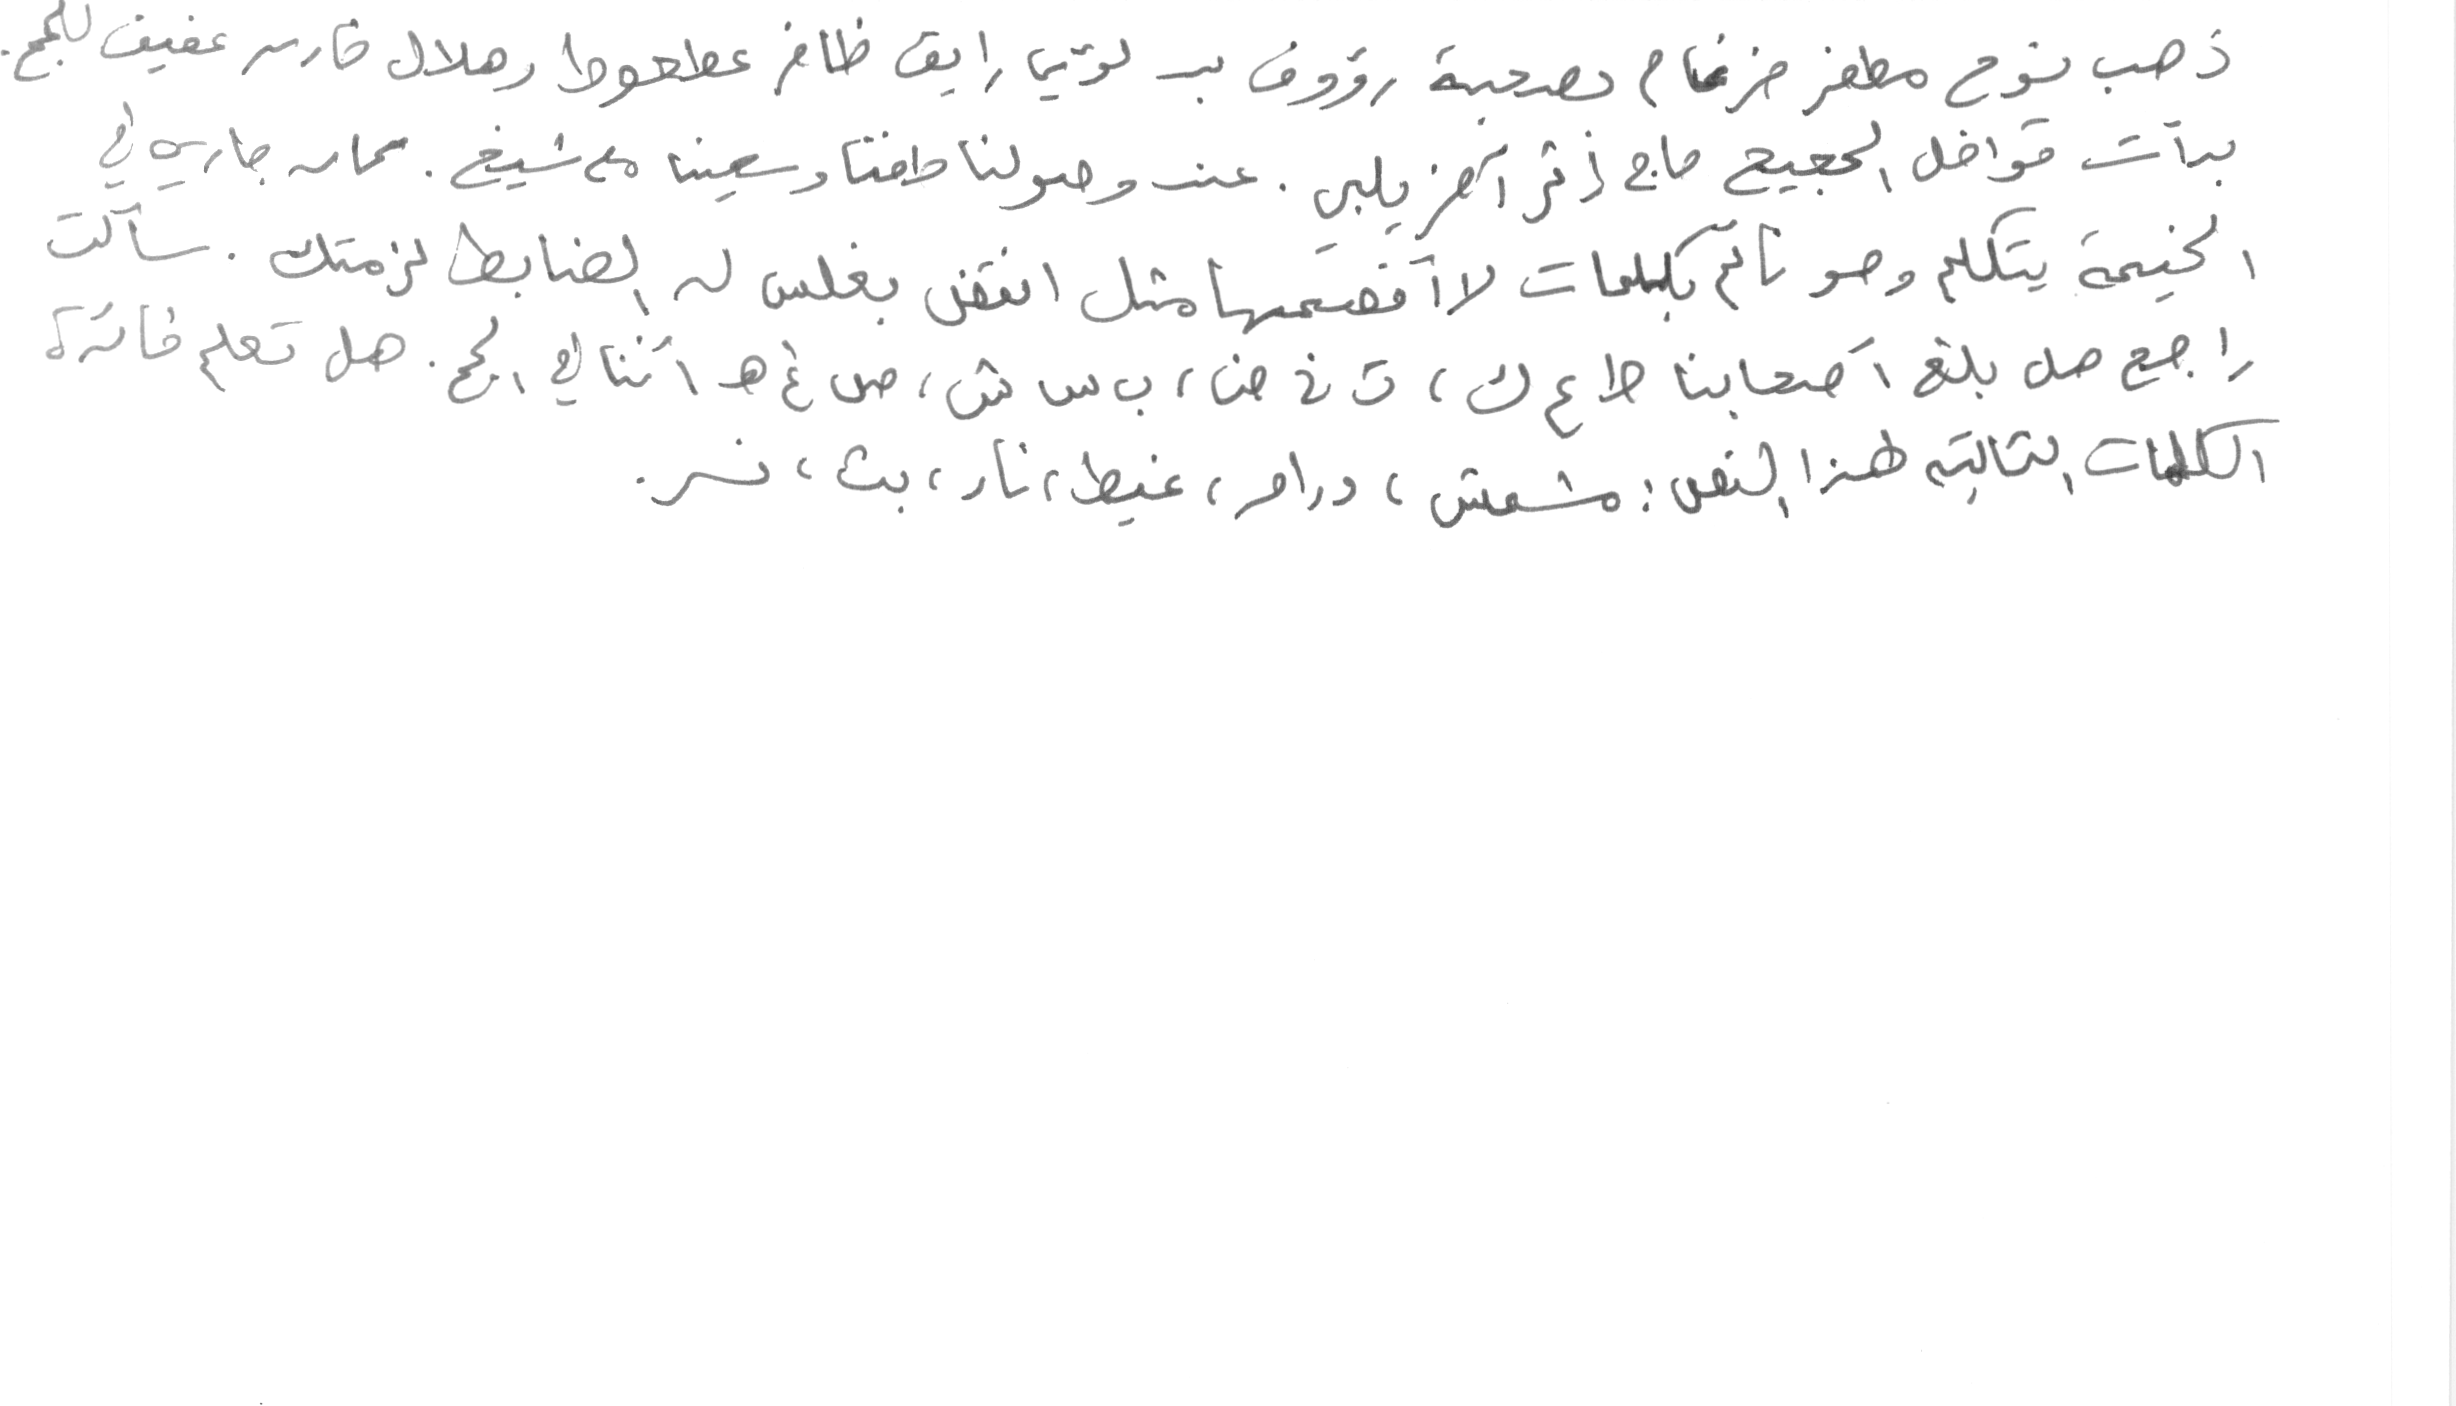 ذهب نوح مظفر ضرغام بصحبة رؤوف بن لؤي رايق ظافر عطعوط وهلال فارس عفيف للحج.
بدأت قوافل الحجيج حاج إثر آخر يلبي. عندو صولنا طفنا وسعينا مع شيخ. كان جاري في
الخيمة يتكلم وهو نائم بكلمات لا أفهمها مثل انقض بغلس له الضابط لزمتك. سألت
راجح هل بلغ أصحابنا ط ع ك، ت خ ض، ب س ش، ص غ ه أثنا في الحج. هل تعلم فائدة
الكلمات التالية لهذا النص: مشمش، دراهم، غيط، نار، بث، نسر.